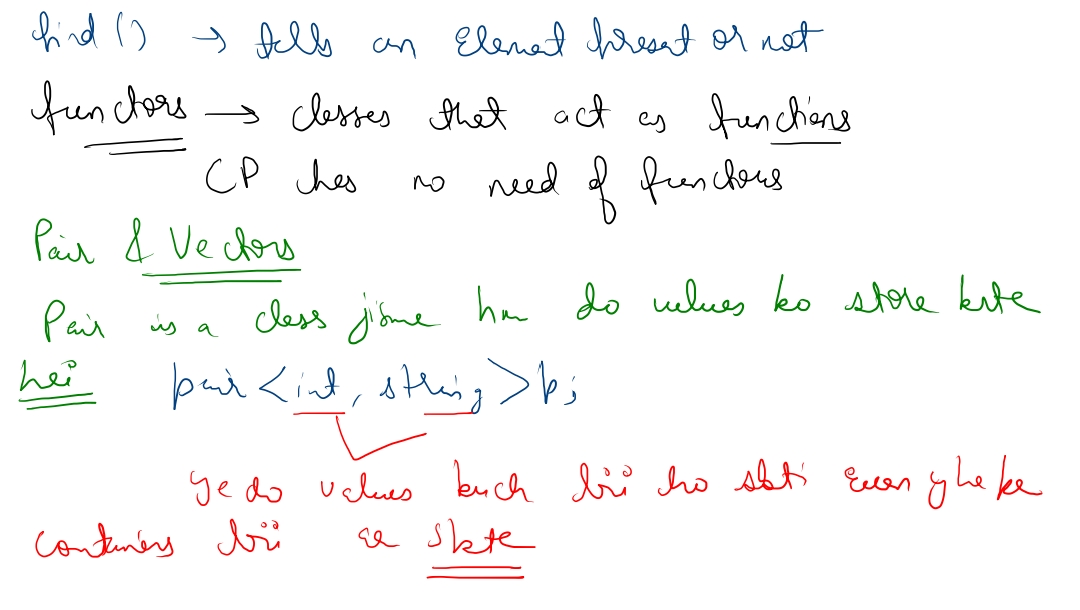 find () → tells an Element present or not
functors → classes that act as functions
CP has no need of functors
Pair & Vectors
Pair is a class jisme hm do values ko store krte
hei pair <int, string> p;
ye do values kuch bii ho skti Even yha ke
containers bii aa skte